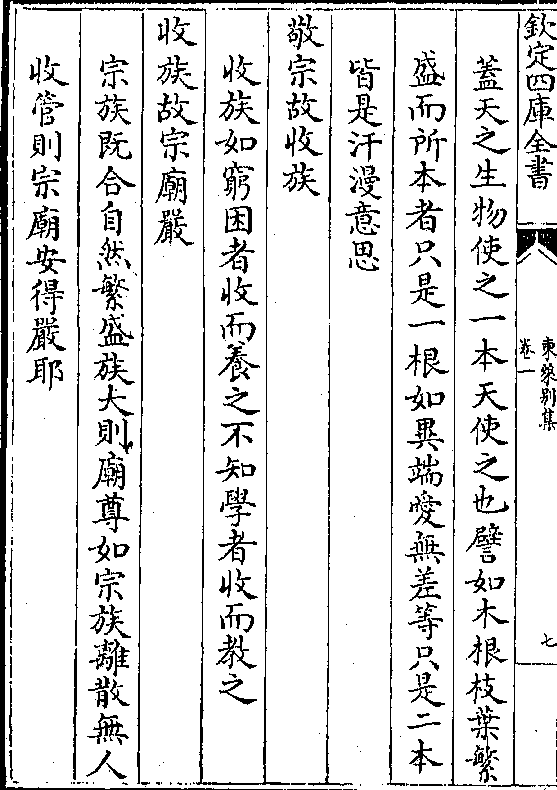 欽定四庫全書
東萊别集
卷一
七
蓋天之生物使之一本天使之也譬如木根枝葉繁
盛而所本者只是一根如異端愛無差等只是二本
皆是汗漫意思
敬宗故收族
收族如窮困者收而養之不知學者收而教之
收族故宗廟嚴
宗族既合自然繁盛族大則廟尊如宗族離散無人
收管則宗廟安得嚴耶